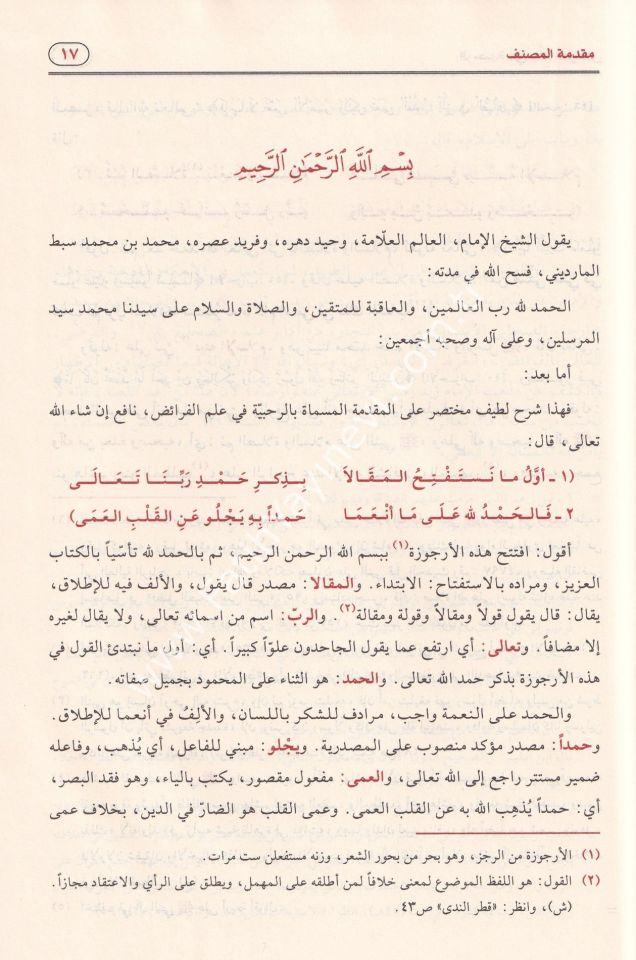 مقدمة المصنف
١٧
بِسْمِ اللَّهِ الرَّحْمَٰنِ الرَّحِيمِ
يقول الشيخ الإمام، العالم العلّامة، وحيد دهره، وفريد عصره، محمد بن محمد سبط
المارديني، فسح الله في مدته:
الحمد لله رب العالمين، والعاقبة للمتقين، والصلاة والسلام على سيدنا محمد سيد
المرسلين، وعلى آله وصحبه أجمعين:
أما بعد:
فهذا شرح لطيف مختصر على المقدمة المسماة بالرحبيّة في علم الفرائض، نافع إن شاء الله
تعالى، قال:
(١ ـ أَوَّلُ ما نَسْتَفْتِحُ المَقَالَا بِذِكرِ حَمْدِ رَبِّنَا تَعَالَى
٢ ـ فَالحَمْدُ لله عَلَى مَا أنْعَمَا حَمداً بِهِ يَجْلُو عَنِ القَلْبِ العَمَى)
أقول: افتتح هذه الأرجوزة(١) ببسم الله الرحمن الرحيم، ثم بالحمد لله تأسّياً بالكتاب
العزيز، ومراده بالاستفتاح: الابتداء. والمقالا: مصدر قال يقول، والألف فيه للإطلاق،
يقال: قال يقول قولاً ومقالاً وقولة ومقالة(٢). والربّ: اسم من اسمائه تعالى، ولا يقال لغيره
إلا مضافاً. وتعالى: أي ارتفع عما يقول الجاحدون علوّاً كبيراً. أي: أول ما نبتدئ القول في
هذه الأرجوزة بذكر حمد الله تعالى. والحمد: هو الثناء على المحمود بجميل صفاته.
والحمد على النعمة واجب، مرادف للشكر باللسان، والألِفُ في أنعما للإطلاق.
وحمداً: مصدر مؤكد منصوب على المصدرية. ويجْلو: مبني للفاعل، أي يُذهب، وفاعله
ضمير مستتر راجع إلى الله تعالى، والعمى: مفعول مقصور، يكتب بالياء، وهو فقد البصر،
أي: حمداً يُذهِب الله به عن القلب العمى. وعمى القلب هو الضارّ في الدين، بخلاف عمى
(١) الأرجوزة من الرجز، وهو بحر من بحور الشعر، وزنه مستفعلن ست مرات.
(٢) القول: هو اللفظ الموضوع لمعنى خلافاً لمن أطلقه على المهمل، ويطلق على الرأي والاعتقاد مجازاً.
(ش)، وانظر: «قطر الندى» ص٤٣.